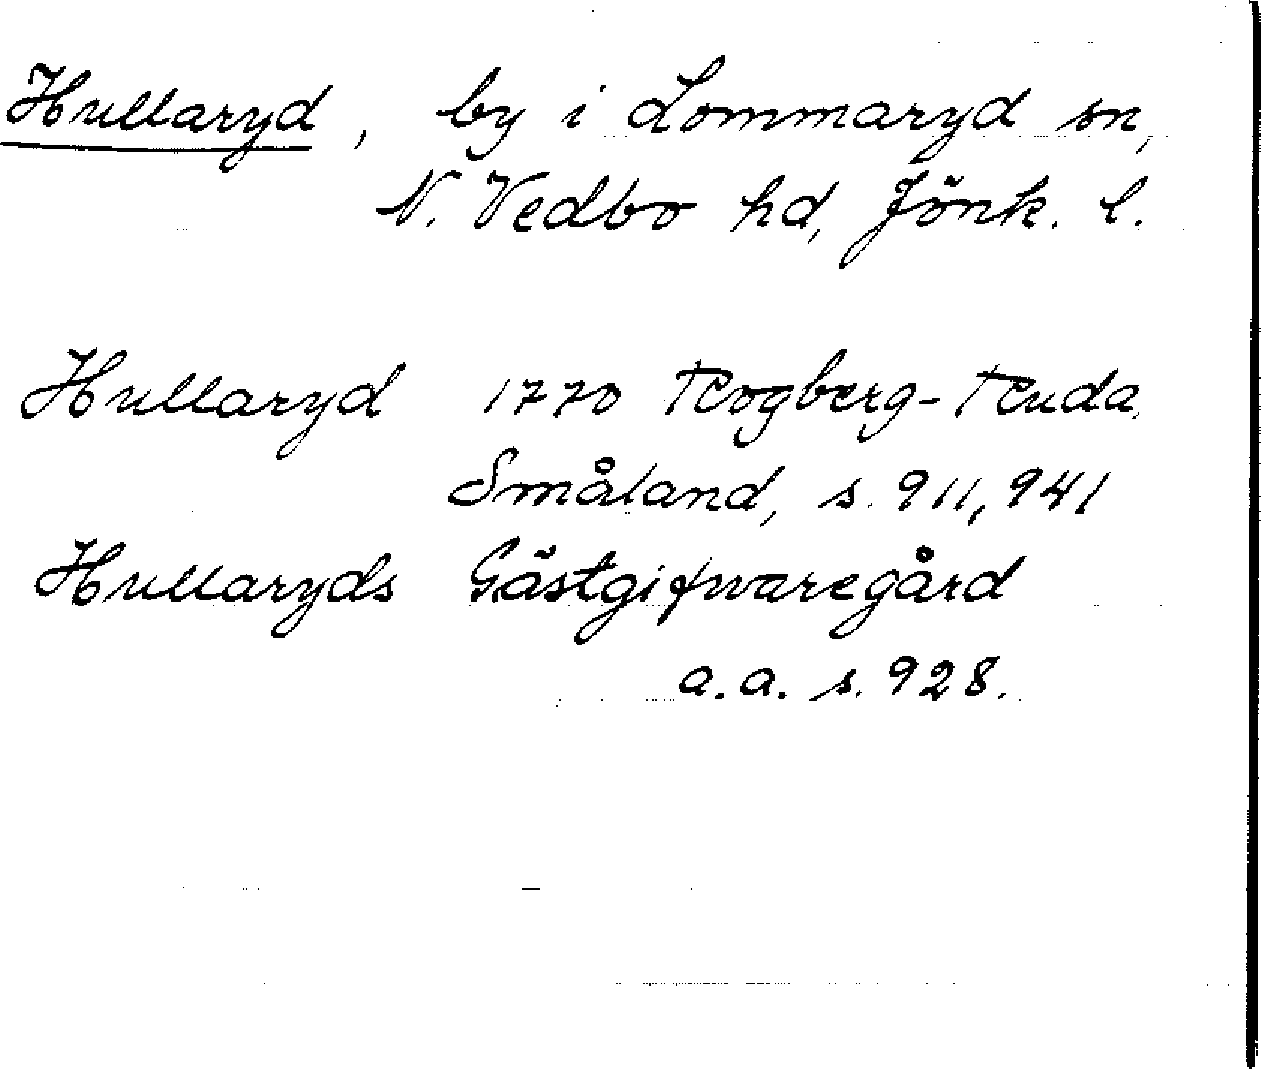 Hullaryd, by i Lommaryd sn,
N. Vedbo hd, Jönk. l.
Hullaryd 1770 Rogberg-Ruda,
Småland, s. 911, 941
Hullaryds Gästgifwaregård
a.a. s. 928.